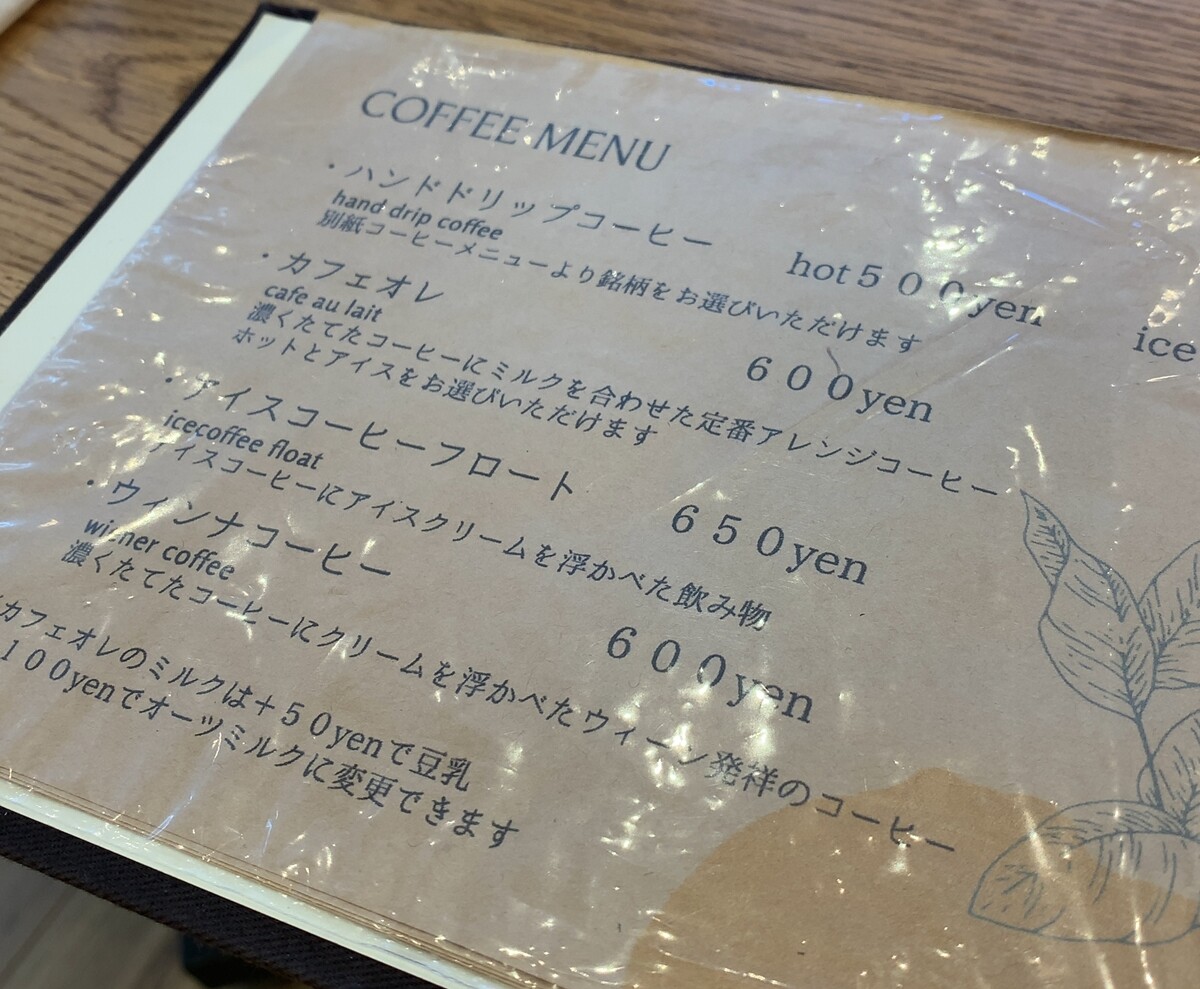 COFFEE MENU
・ハンドドリップコーヒー hot５００yen ice
hand drip coffee
別紙コーヒーメニューより銘柄をお選びいただけます
・カフェオレ ６００yen
cafe au lait
濃くたてたコーヒーにミルクを合わせた定番アレンジコーヒー
ホットとアイスをお選びいただけます
・アイスコーヒーフロート ６５０yen
icecoffee float
アイスコーヒーにアイスクリームを浮かべた飲み物
・ウィンナコーヒー ６００yen
wiener coffee
濃くたてたコーヒーにクリームを浮かべたウィーン発祥のコーヒー
カフェオレのミルクは＋５０yenで豆乳
１００yenでオーツミルクに変更できます